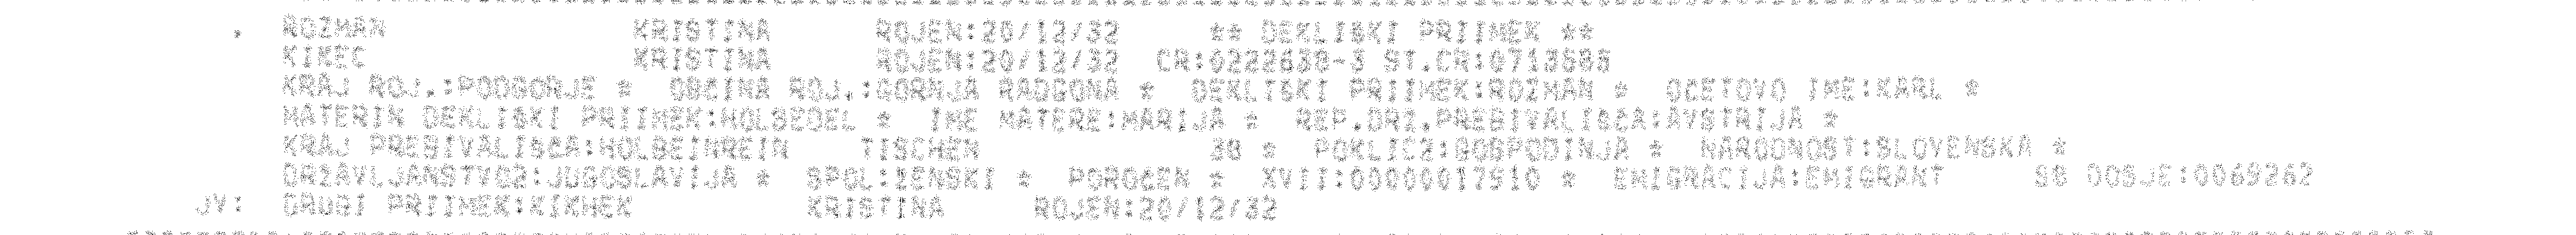 . ROZMAN KRISTINA ROJEN:20/12/32 ** DEKLISKI PRIIMEK **
KIKEC KRISTINA ROJEN:20/12/32 CR:0222638-3 ST.CR:0713585
KRAJ ROJ.:PODGORJE * OBCINA ROJ.:GORNJA RADGONA * DEKLISKI PRIIMEK:ROZMAN * OCETOVO IME:KARL *
MATERIN DEKLISKI PRIIMEK:HOLSEDEL * IME MATERE:MARIJA * REP.DRZ.PREBIVALISCA:AVSTRIJA *
KRAJ PREBIVALISCA:HOLBEINREIN TISCHEN 38 * POKLIC2:GOSPODINJA * NARODNOST:SLOVENSKA *
DRZAVLJANSTVO2:JUGOSLAVIJA * SPOL:ZENSKI * POROCEN * XVII:00000017510 * EMIGRACIJA:EMIGRANT SB DOSJE:0069262
JV: DRUGI PRIIMEK:KIKMEK KRISTINA ROJEN:20/12/32